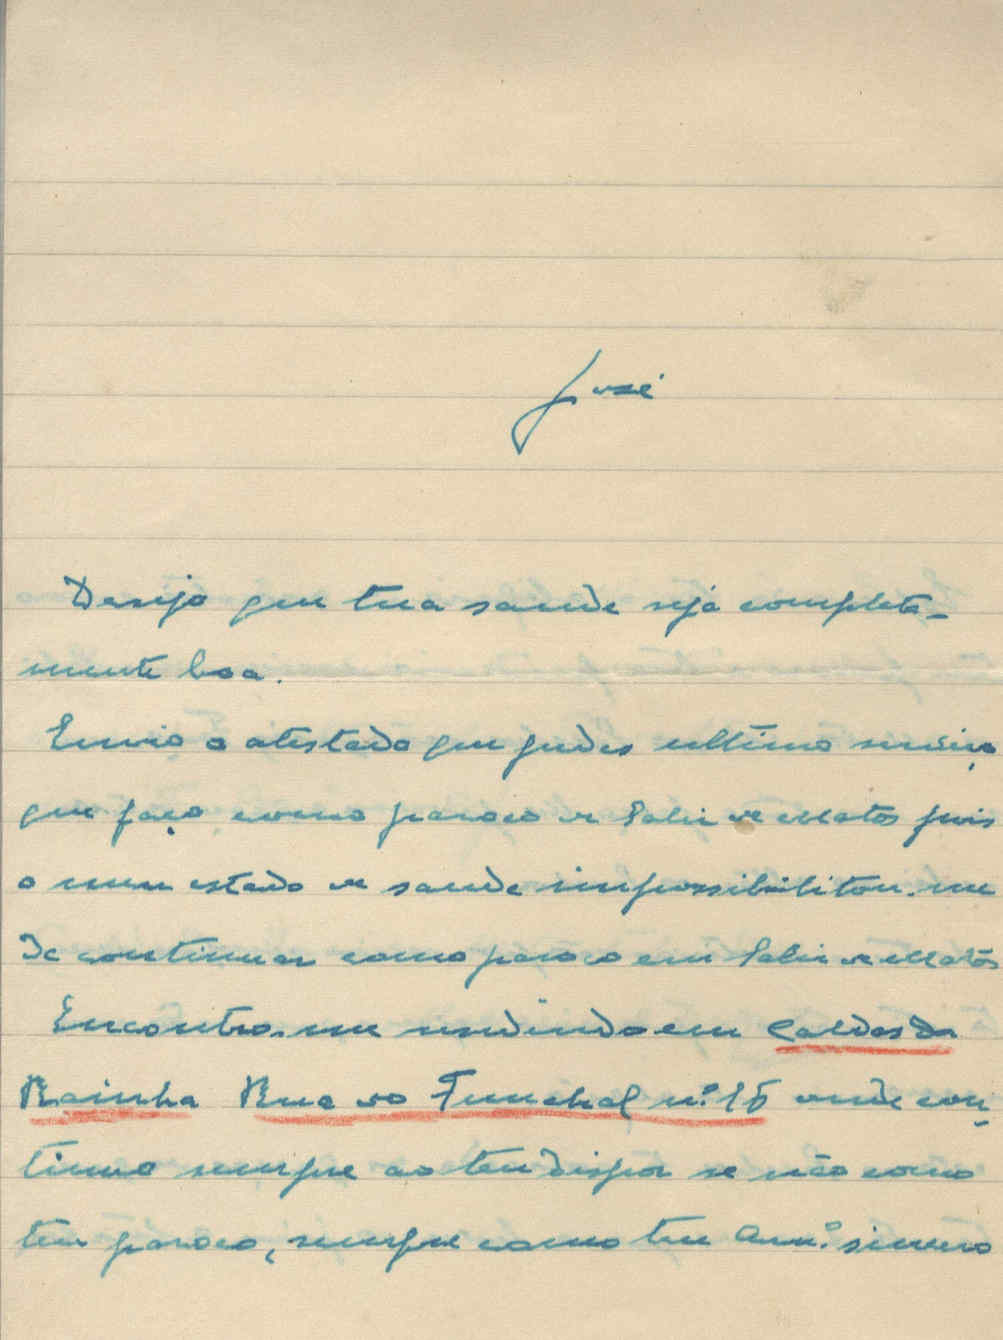 José
Desejo que tua saude seja completa-
mente boa.
Envio o atestado que pedes ultimo serviço
que faço como paroco de Salir de Matos pois
o meu estado de saude impossibilitou-me
de continuar como paroco em Salir de Matos
Encontro-me residindo em Caldas da
Rainha Rua do Funchal n.º 15 onde con-
tinuo sempre ao teu dispor se não como
teu paroco, sempre como teu Am.º sincero